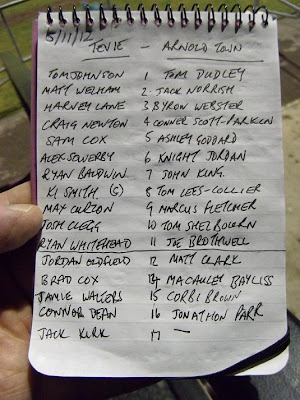 5/11/12
TEVIE - ARNOLD TOWN
TOM JOHNSON 1 TOM DUDLEY
MATT WELHAM 2 JACK NORRISH
HARVEY LANE 3 BYRON WEBSTER
CRAIG NEWTON 4 CONNER SCOTT-PARKIN
SAM COX 5 ASHLEY GODDARD
ALEX SEWERBY 6 KNIGHT JORDAN
RYAN BALDWIN 7 JOHN KING
KI SMITH (G) 8 TOM LEES-COLLIER
MAX CURZON 9 MARCUS FLETCHER
JOSH CLEGG 10 TOM SHELBOURN
RYAN WHITEHEAD 11 JOE BROTHWELL
JORDAN OLDFIELD 12 MATT CLARK
BRAD COX 14 MACAULEY BAYLISS
JAMIE WALTERS 15 CORBI BROWN
CONNOR DEAN 16 JONATHON PARR
JACK KIRK 17 —